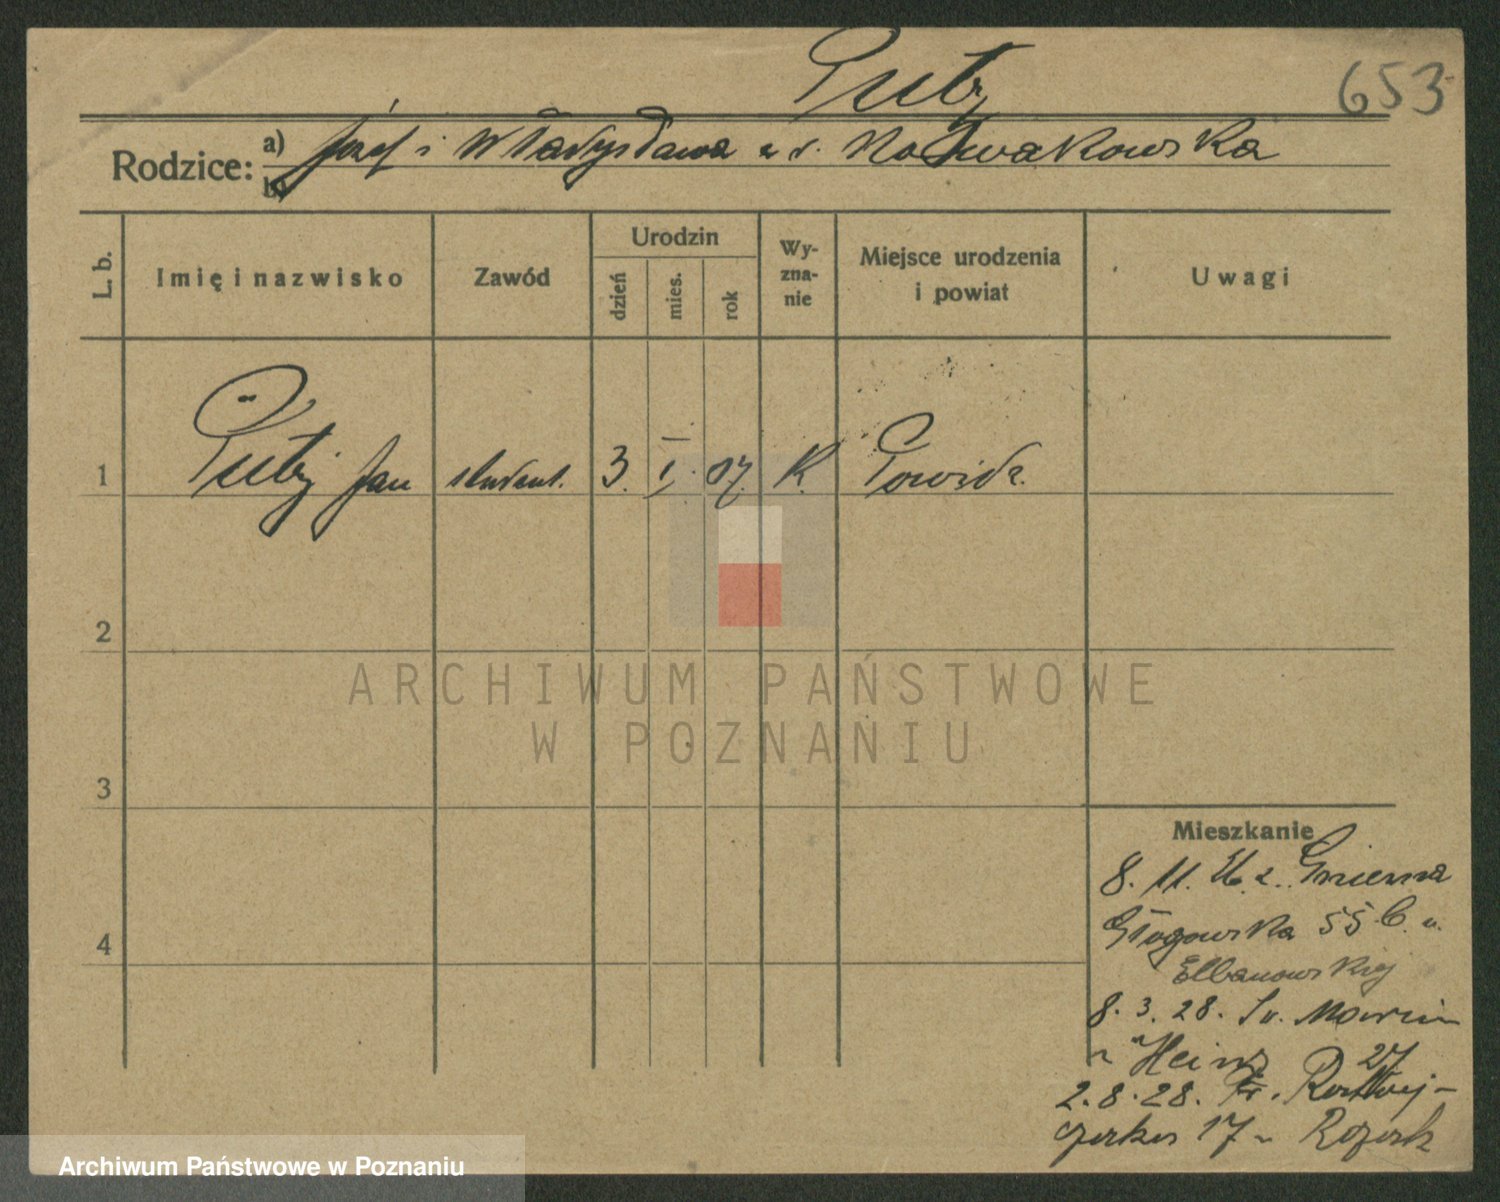 Putz
653
Rodzice:
a) Józef i Władysława z d. Nowakowska
b)
L. b.
Imię i nazwisko
Zawód
Urodzin
dzień
mies.
rok
Wy-
zna-
nie
Miejsce urodzenia
i powiat
Uwagi
1 Jan student. 3. I. 07. K. Powidz.
2
3
4
Mieszkanie
8. 11. 26 z Gniezna
Głogowska 55 u.
Elbanowskiej
8. 3. 28. Św. Marcin
u Heinz 27
2. 8. 28. Fr. Rataj-
czaka 17 u
ARCHIWUM PAŃSTWOWE
W POZNANIU
Archiwum Państwowe w Poznaniu